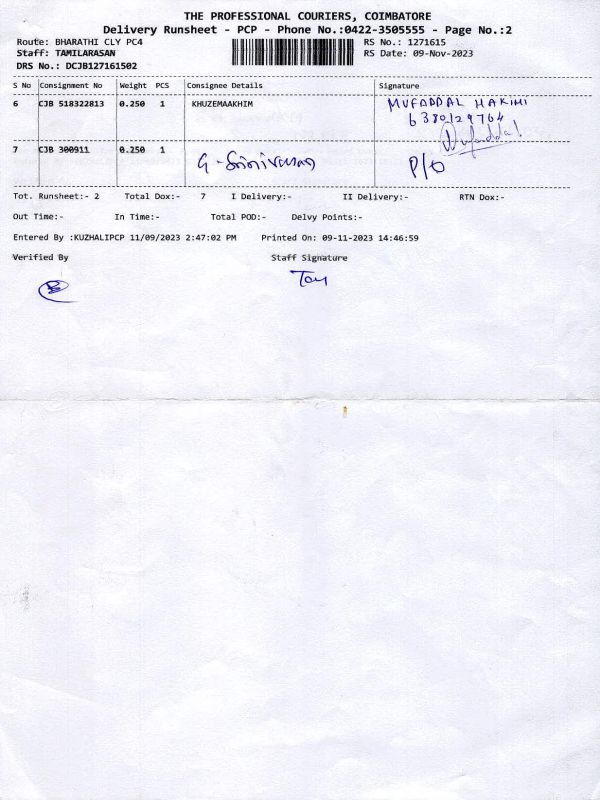 THE PROFESSIONAL COURIERS, COIMBATORE
Delivery Runsheet - PCP - Phone No.:0422-3505555 - Page No.:2
Route: BHARATHI CLY PC4 RS No.: 1271615
Staff: TAMILARASAN RS Date: 09-Nov-2023
DRS No.: DCJB127161502
S No Consignment No Weight PCS Consignee Details Signature
6 CJB 518322813 0.250 1 KHUZEMAAKHIM MUFADDAL HAKIMI
6380129764
Mufaddal
7 CJB 300911 0.250 1 G - Srinivasan P/O
Tot. Runsheet:- 2 Total Dox:- 7 I Delivery:- II Delivery:- RTN Dox:-
Out Time:- In Time:- Total POD:- Delvy Points:-
Entered By :KUZHALIPCP 11/09/2023 2:47:02 PM Printed On: 09-11-2023 14:46:59
Verified By Staff Signature